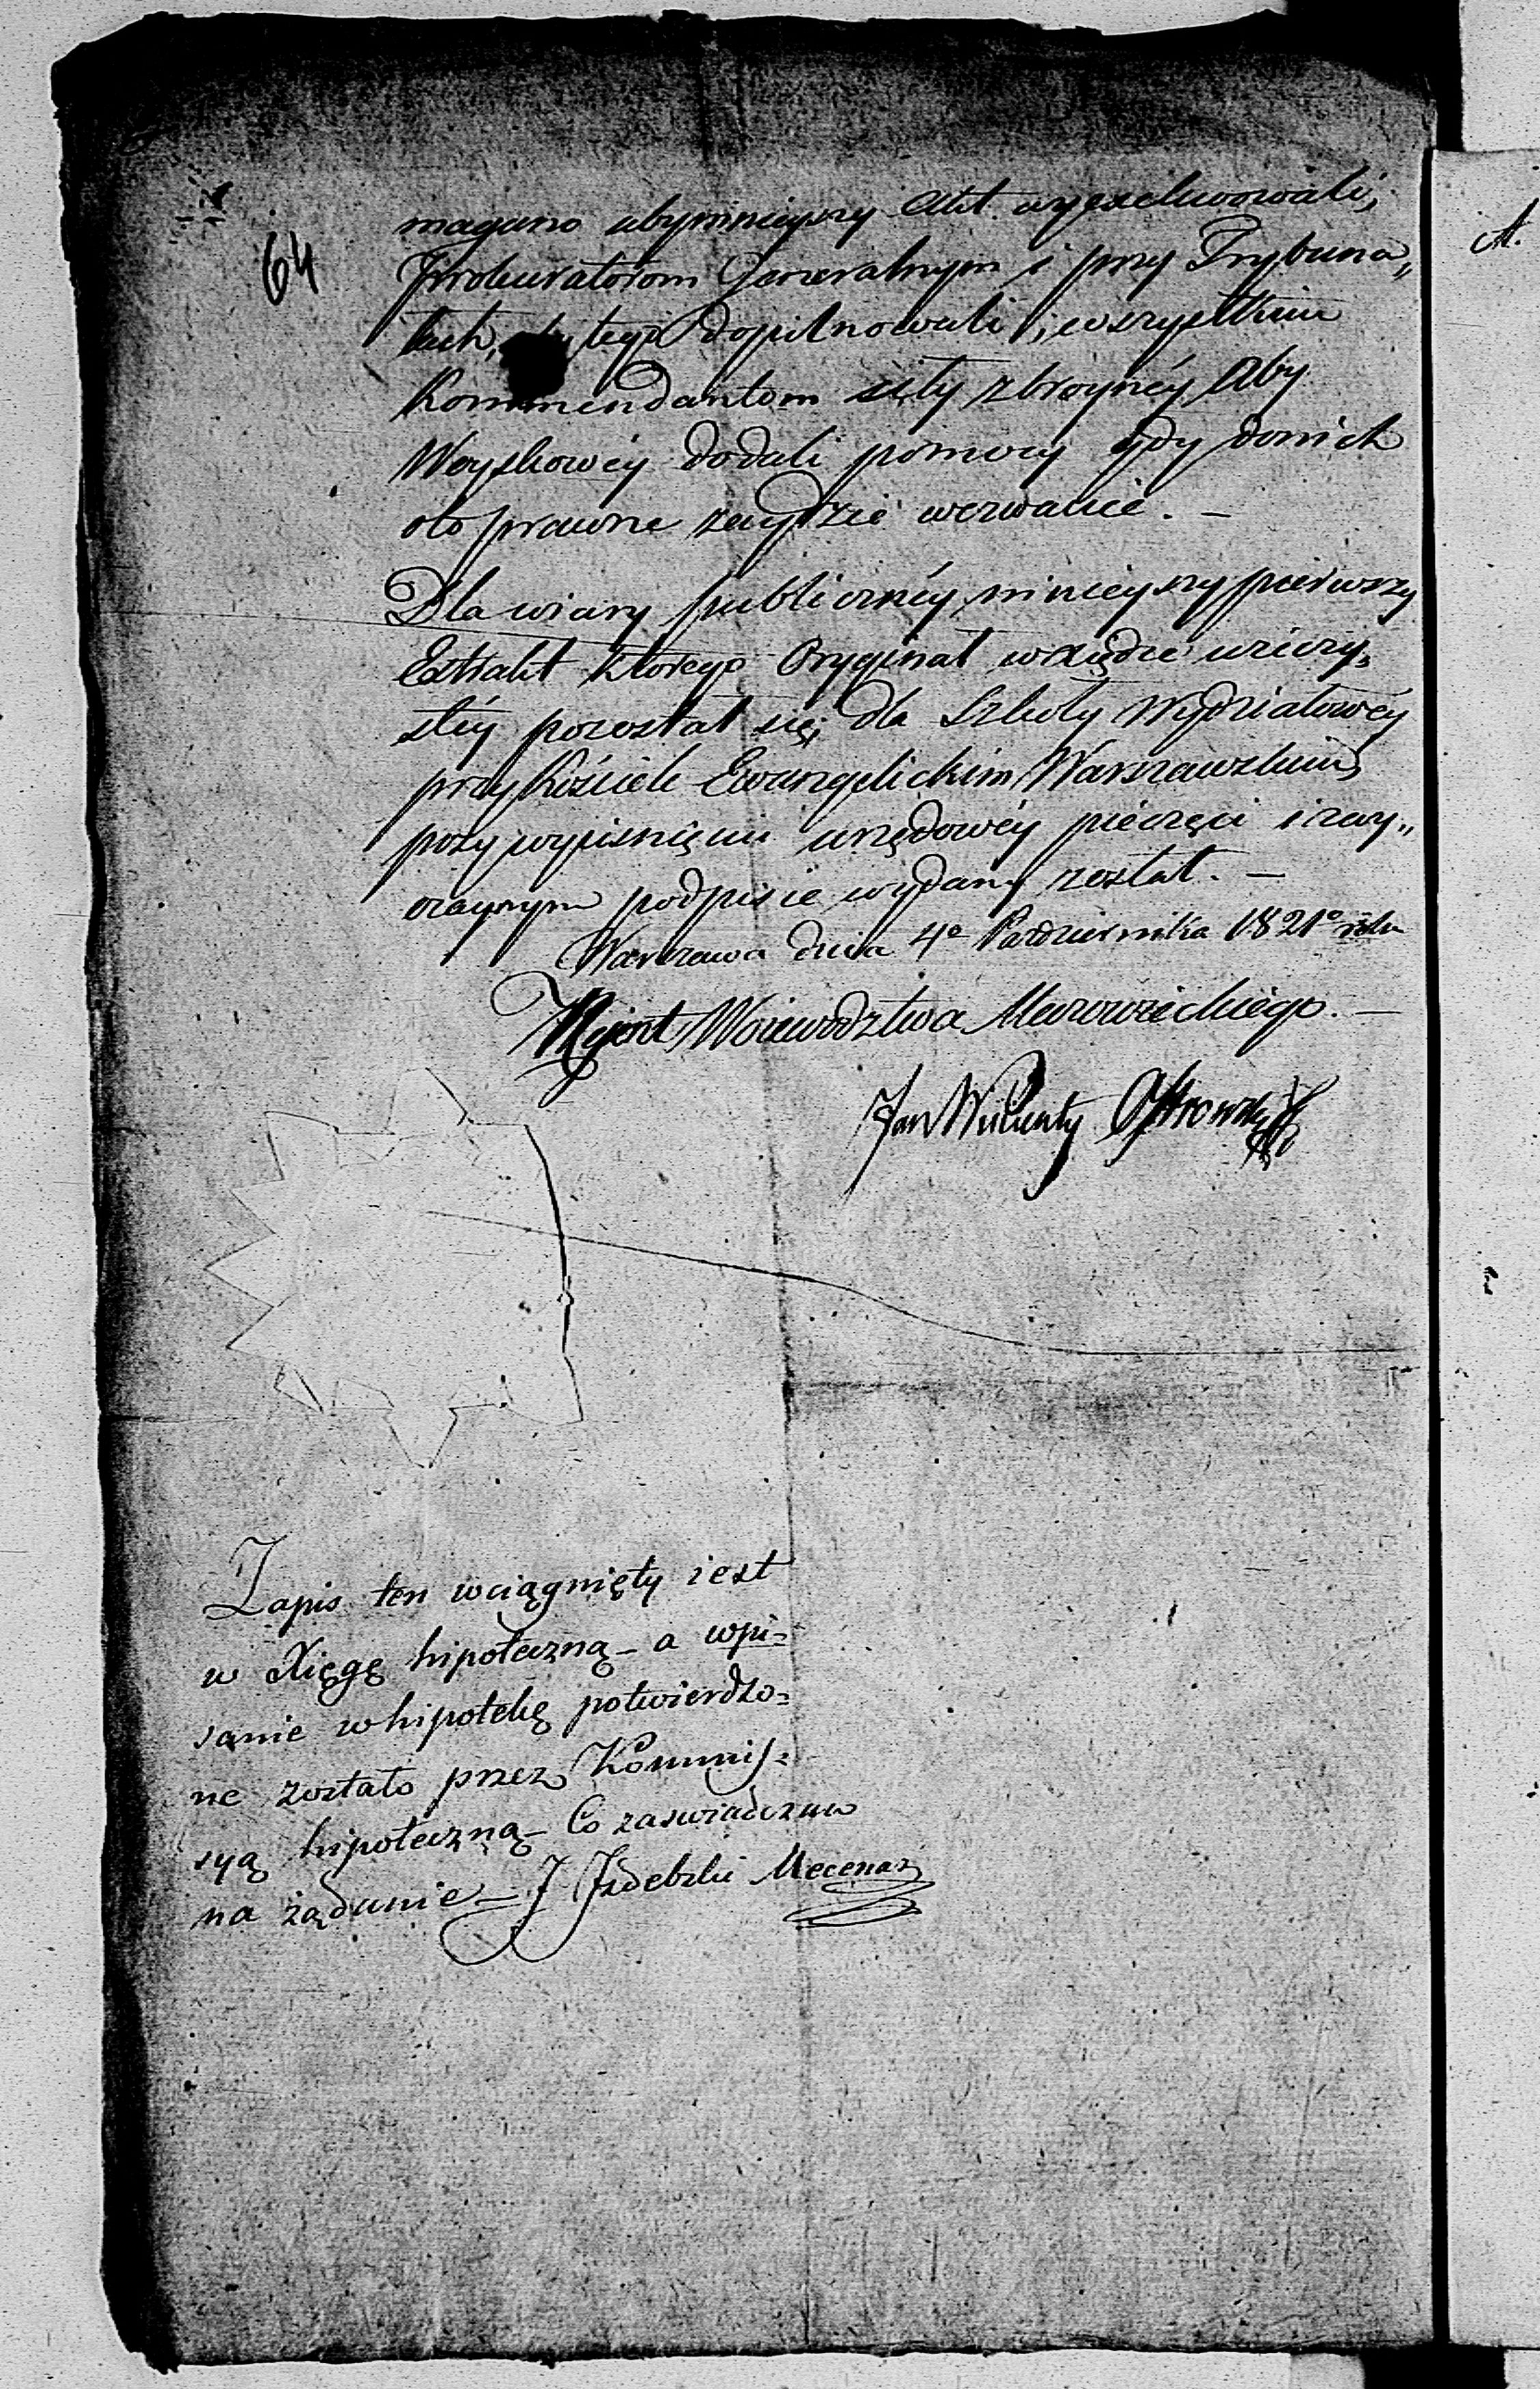 64
magano aby ninieyszy Akt wyexekwowali,
Prokuratorom Generalnym i przy Trybuna„
łach, tego dopilnowali, i wszystkim
Kommendantom siły zbroyney Aby
Woyskowey dodali pomocy gdy do nich
oto prawne zaydzie wezwanie. —
Dla wiary publiczney ninieyszy pierwszy
Extrakt którego Oryginał w Xiędze wieczy„
stey pozostał się, dla Szkoły Wydziałowey
przy Kościele Ewangelickim Warszawskim
przy wyciśnięciu urzędowey pieczęci i zwy„
czaynym podpisie wydany został. —
Warszawa dnia 4º Pazdziernika 1821º roku
Rejent Woiewodztwa Mazowieckiego. —
Jan Wincenty Ostrowski
Zapis ten wciągnięty iest
w Xięgę hipoteczną – a wpi=
sanie w hipotekę potwierdzo=
ne zostało przez Kommis=
syą hipoteczną – Co zaswiadczam
na żądanie – J Izdebski Mecenas